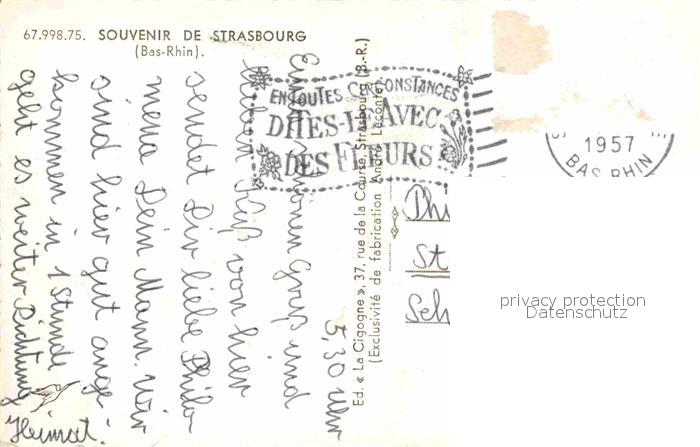 67.998.75. SOUVENIR DE STRASBOURG
(Bas-Rhin).
EN TOUTES CIRCONSTANCES
DITES-LE AVEC
DES FLEURS
1957
BAS RHIN
5,30 Uhr
Einen schönen Gruß und
lieben Kuß von hier
sendet Dir liebe Philo-
mena Dein Mann. Wir
sind hier gut ange-
kommen in 1 Stunde
geht es weiter Richtung
Heimat.
Ed. « La Cigogne », 37, rue de la Course, Strasbourg (B.-R.)
(Exclusivité de fabrication André Leconte)
Phi
St
Sch
privacy protection
Datenschutz